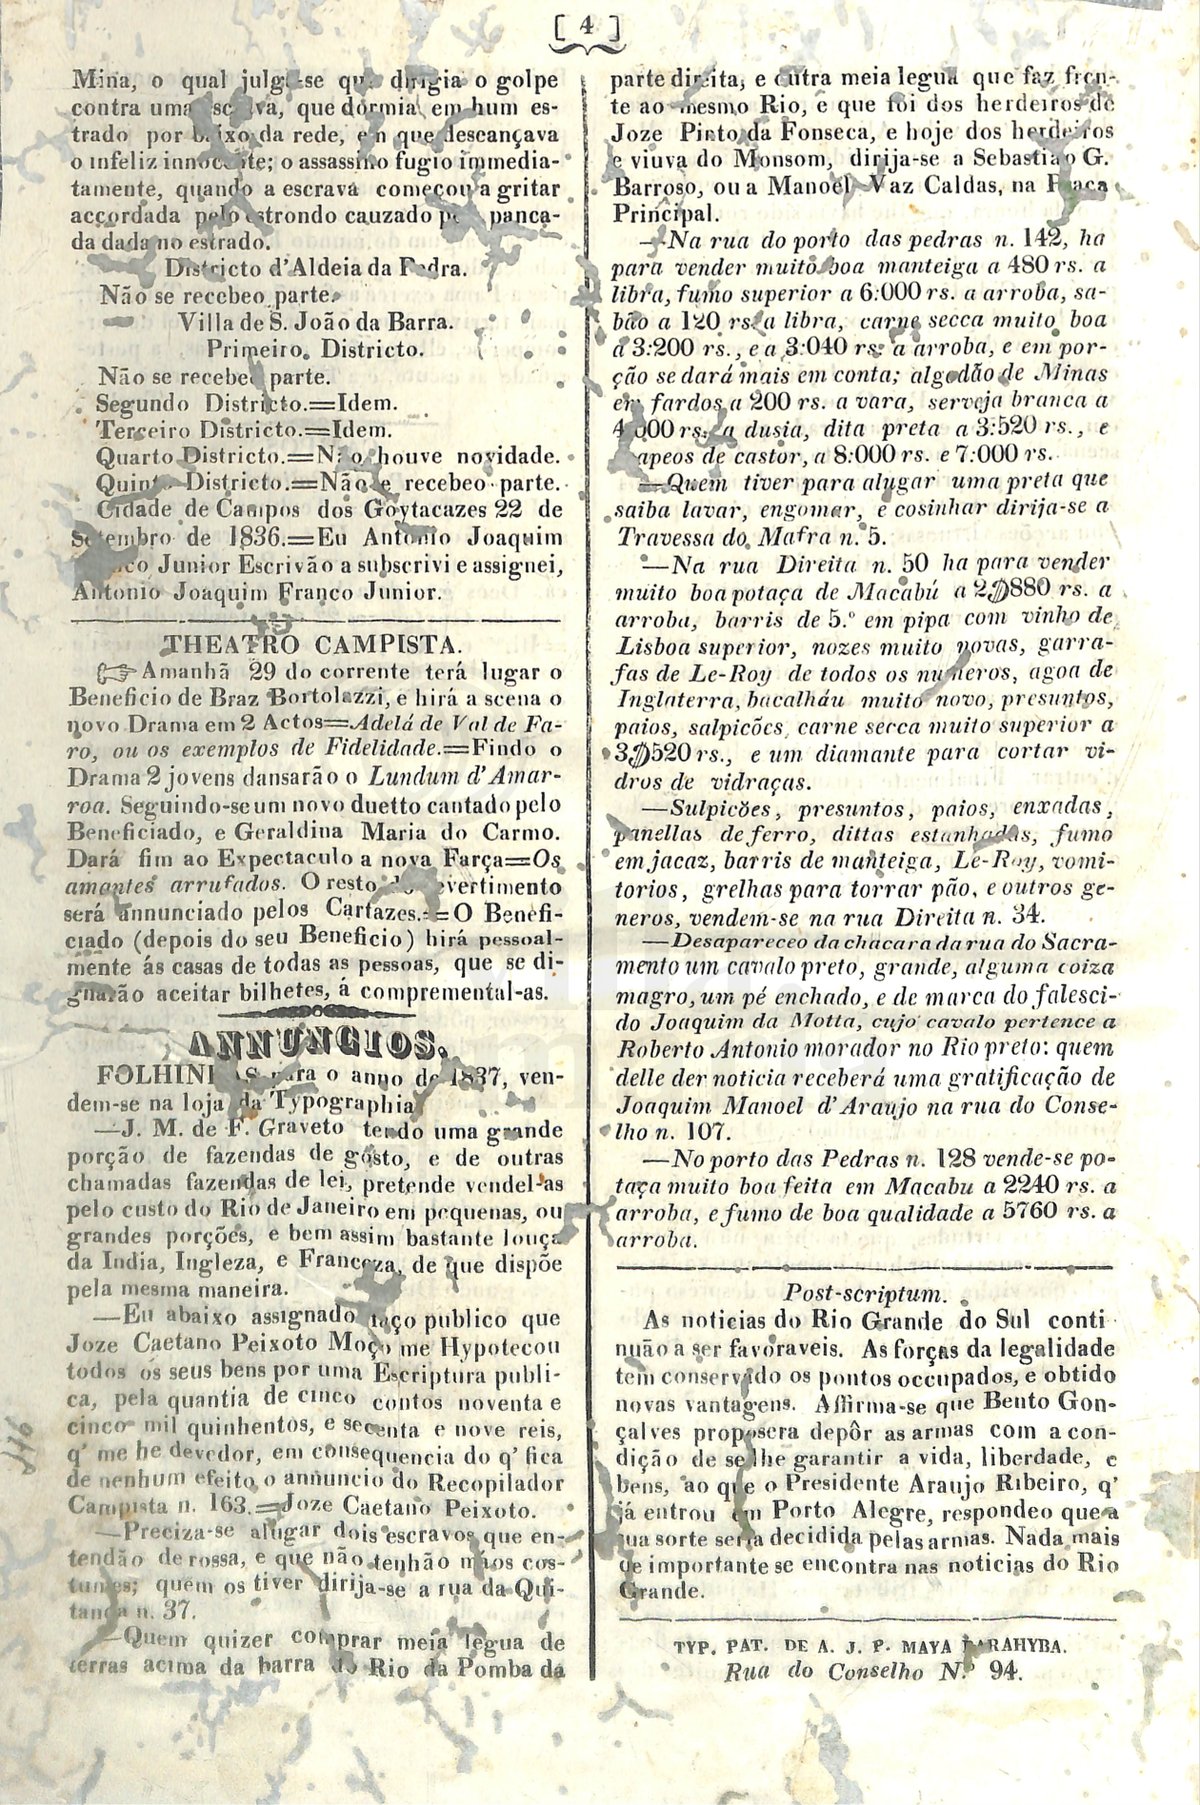 [ 4 ]
Mina, o qual julga-se que dirigia o golpe
contra uma escrava, que dormia em hum es-
trado por baixo da rede, em que descançava
o infeliz innocente; o assassino fugio immedia-
tamente, quando a escrava começou a gritar
accordada pelo estrondo cauzado pela panca-
da dada no estrado.
Districto d'Aldeia da Pedra.
Não se recebeo parte.
Villa de S. João da Barra.
Primeiro Districto.
Não se recebeo parte.
Segundo Districto.=Idem.
Terceiro Districto.=Idem.
Quarto Districto.=Não houve novidade.
Quinto Districto.=Não se recebeo parte.
Cidade de Campos dos Goytacazes 22 de
Setembro de 1836.=Eu Antonio Joaquim
Franco Junior Escrivão a subscrivi e assignei,
Antonio Joaquim Franco Junior.
THEATRO CAMPISTA.
☞Amanhã 29 do corrente terá lugar o
Beneficio de Braz Bortolazzi, e hirá a scena o
novo Drama em 2 Actos=Adelá de Val de Fa-
ro, ou os exemplos de Fidelidade.=Findo o
Drama 2 jovens dansarão o Lundum d'Amar-
roa. Seguindo-se um novo duetto cantado pelo
Beneficiado, e Geraldina Maria do Carmo.
Dará fim ao Expectaculo a nova Farça=Os
amantes arrufados. O resto do divertimento
será annunciado pelos Cartazes.=O Benefi-
ciado (depois do seu Beneficio) hirá pessoal-
mente ás casas de todas as pessoas, que se di-
gnarão aceitar bilhetes, á compremental-as.
ANNUNCIOS.
FOLHINHAS para o anno de 1837, ven-
dem-se na loja da Typographia
—J. M. de F. Graveto tendo uma grande
porção de fazendas de gosto, e de outras
chamadas fazendas de lei, pretende vendel-as
pelo custo do Rio de Janeiro em pequenas, ou
grandes porções, e bem assim bastante louça
da India, Ingleza, e Franceza, de que dispõe
pela mesma maneira.
—Eu abaixo assignado faço publico que
Joze Caetano Peixoto Moço me Hypotecou
todos os seus bens por uma Escriptura publi-
ca, pela quantia de cinco contos noventa e
cinco mil quinhentos, e secenta e nove reis,
q' me he devedor, em consequencia do q' fica
de nenhum efeito o annuncio do Recopilador
Campista n. 163.=Joze Caetano Peixoto.
—Preciza-se alugar dois escravos que en-
tendão de rossa, e que não tenhão máos cos-
tumes; quem os tiver dirija-se a rua da Qui-
tanda n. 37.
—Quem quizer comprar meia legua de
terras acima da barra do Rio da Pomba da
parte direita, e outra meia legua que faz fren-
te ao mesmo Rio, e que foi dos herdeiros de
Joze Pinto da Fonseca, e hoje dos herdeiros
e viuva do Monsom, dirija-se a Sebastião G.
Barroso, ou a Manoel Vaz Caldas, na Praça
Principal.
—Na rua do porto das pedras n. 142, ha
para vender muito boa manteiga a 480 rs. a
libra, fumo superior a 6:000 rs. a arroba, sa-
bão a 120 rs. a libra, carne secca muito boa
a 3:200 rs., e a 3:040 rs. a arroba, e em por-
ção se dará mais em conta; algodão de Minas
em fardos a 200 rs. a vara, serveja branca a
4:000 rs. a dusia, dita preta a 3:520 rs., e
chapeos de castor, a 8:000 rs. e 7:000 rs.
—Quem tiver para alugar uma preta que
saiba lavar, engomar, e cosinhar dirija-se a
Travessa do Mafra n. 5.
—Na rua Direita n. 50 ha para vender
muito boa potaça de Macabú a 2$880 rs. a
arroba, barris de 5.º em pipa com vinho de
Lisboa superior, nozes muito novas, garra-
fas de Le-Roy de todos os numeros, agoa de
Inglaterra, bacalháu muito novo, presuntos,
paios, salpicões, carne secca muito superior a
3$520 rs., e um diamante para cortar vi-
dros de vidraças.
—Sulpicões, presuntos, paios, enxadas,
panellas de ferro, dittas estanhadas, fumo
em jacaz, barris de manteiga, Le-Roy, vomi-
torios, grelhas para torrar pão, e outros ge-
neros, vendem-se na rua Direita n. 34.
—Desapareceo da chacara da rua do Sacra-
mento um cavalo preto, grande, alguma coiza
magro, um pé enchado, e de marca do falesci-
do Joaquim da Motta, cujo cavalo pertence a
Roberto Antonio morador no Rio preto: quem
delle der noticia receberá uma gratificação de
Joaquim Manoel d'Araujo na rua do Conse-
lho n. 107.
—No porto das Pedras n. 128 vende-se po-
taça muito boa feita em Macabu a 2240 rs. a
arroba, e fumo de boa qualidade a 5760 rs. a
arroba.
Post-scriptum.
As noticias do Rio Grande do Sul conti
nuão a ser favoraveis. As forças da legalidade
tem conservado os pontos occupados, e obtido
novas vantagens. Affirma-se que Bento Gon-
çalves proposera depôr as armas com a con-
dição de se lhe garantir a vida, liberdade, e
bens, ao que o Presidente Araujo Ribeiro, q'
já entrou em Porto Alegre, respondeo que a
sua sorte seria decidida pelas armas. Nada mais
de importante se encontra nas noticias do Rio
Grande.
TYP. PAT. DE A. J. P. MAYA PARAHYBA.
Rua do Conselho N.º 94.